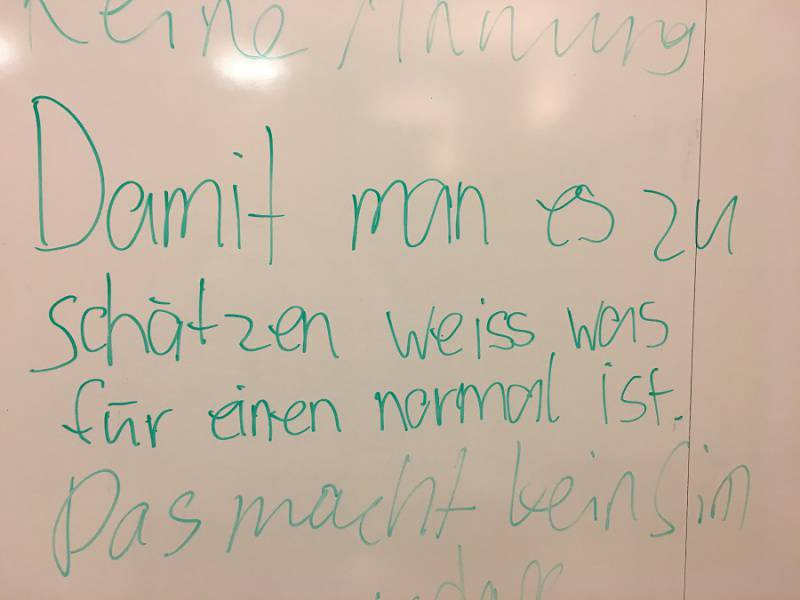 Keine Ahnung
Damit man es zu
schätzen weiss was
für einen normal ist.
Das macht kein Sin